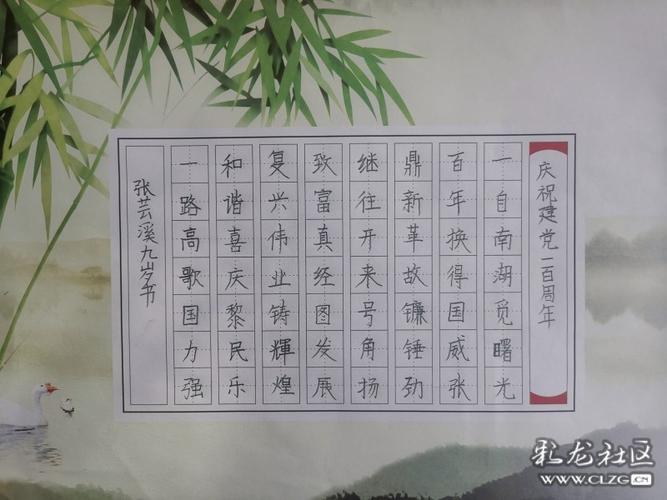 庆祝建党一百周年
一自南湖觅曙光
百年换得国威张
鼎新革故镰锤劲
继往开来号角扬
致富真经图发展
复兴伟业铸輝煌
和谐喜庆黎民乐
一路高歌国力强
张芸溪九岁书
彩龙社区
WWW.CLZG.CN